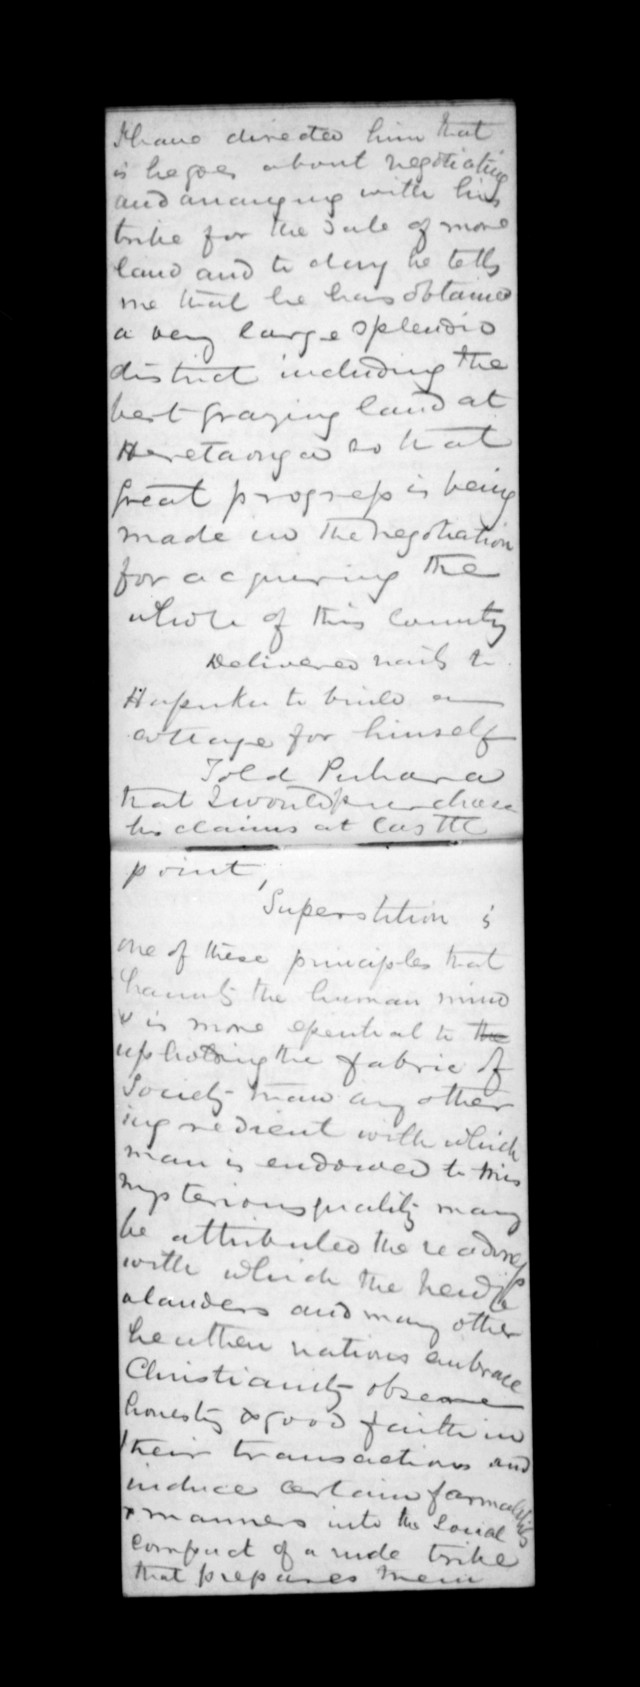 I have directed him that
is he goes about negotiating
and arranging with his
tribe for the sale of more
land and to day he tells
me that he has obtained
a very large splendid
district including the
best grazing land at
Heretaonga so that
great progress is being
made in the negotiation
for acquiring the
whole of this country
Delivered nails to
Hapuku to build a
cottage for himself
Told Puhara
that I would purchase
his claims at Castle
point,
Superstition is
one of those principles that
haunts the human mind
& is more essential to the
upholding the fabric of
Society than any other
ingredient with which
man is endowed to this
mysterious quality may
be attributed the readiness
with which the New Ze
alanders and many other
heathen nations embrace
Christianity observe
honesty & good faith in
their transactions and
induce certain formalities
& manners into the Social
compact of a rude tribe
that prepares them